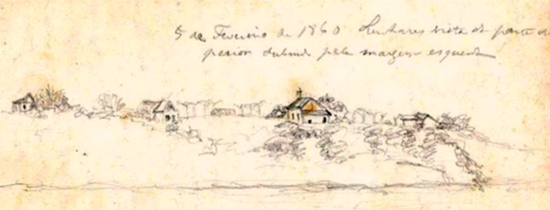 5 de Fevereiro de 1860. Linhares vista da parte
perior subindo pela margem esquerda